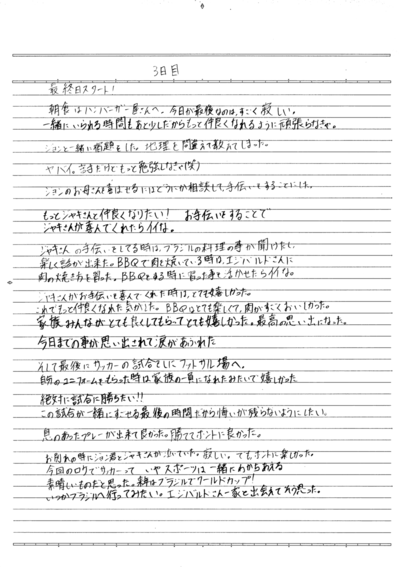 3日目
最終日スタート!
朝食はハンバーガー屋さんへ。今日が最後なのは、すごく寂しい。
一緒にいられる時間もあと少しだからもっと仲良くなれるように頑張らなきゃ。
ジョンと一緒に宿題をした。地理を間違えて教えてしまった。
ヤバイ。帰ったらもっと勉強しなきゃ(笑)
ジョンのお母さんを喜ばせるにはどうにか相談して、手伝いをすることにした。
もっとジャキさんと仲良くなりたい! お手伝いをすることで
ジャキさんが喜んでくれたらイイな。
ジャキさんの手伝いをしてる時は、ブラジルの料理の事が聞けたし、
楽しく話が出来た。BBQで肉を焼いている時は、エジバルドさんに
肉の焼き方を習った。BBQをする時に習った事を活かせたらイイな。
ジャキさんがお手伝いを喜んでくれた時は、とても嬉しかった。
これでもっと仲良くなれた気がした。BBQはとても楽しくて、肉がすごくおいしかった。
家族みんながとても良くしてもらってとても嬉しかった。最高の思い出になった。
今日までの事が思い出されて涙があふれた
そして最後にサッカーの試合をしにフットサル場へ。
自分のユニフォームをもらった時は家族の一員になれたみたいで嬉しかった
絶対に試合に勝ちたい!!
この試合が一緒に過せる最後の時間だから悔いが残らないようにしたい。
息のあったプレーが出来て良かった。勝ててホントに良かった。
お別れの時にジョン君とジャキさんが泣いていた。寂しい。でもホントに楽しかった。
今回のロケでサッカーって いやスポーツは一緒にわかちあえる
素晴しいものだと思った。来年はブラジルでワールドカップ!
いつかブラジルへ行ってみたい。エジバルドさん一家と出会えてそう思った。